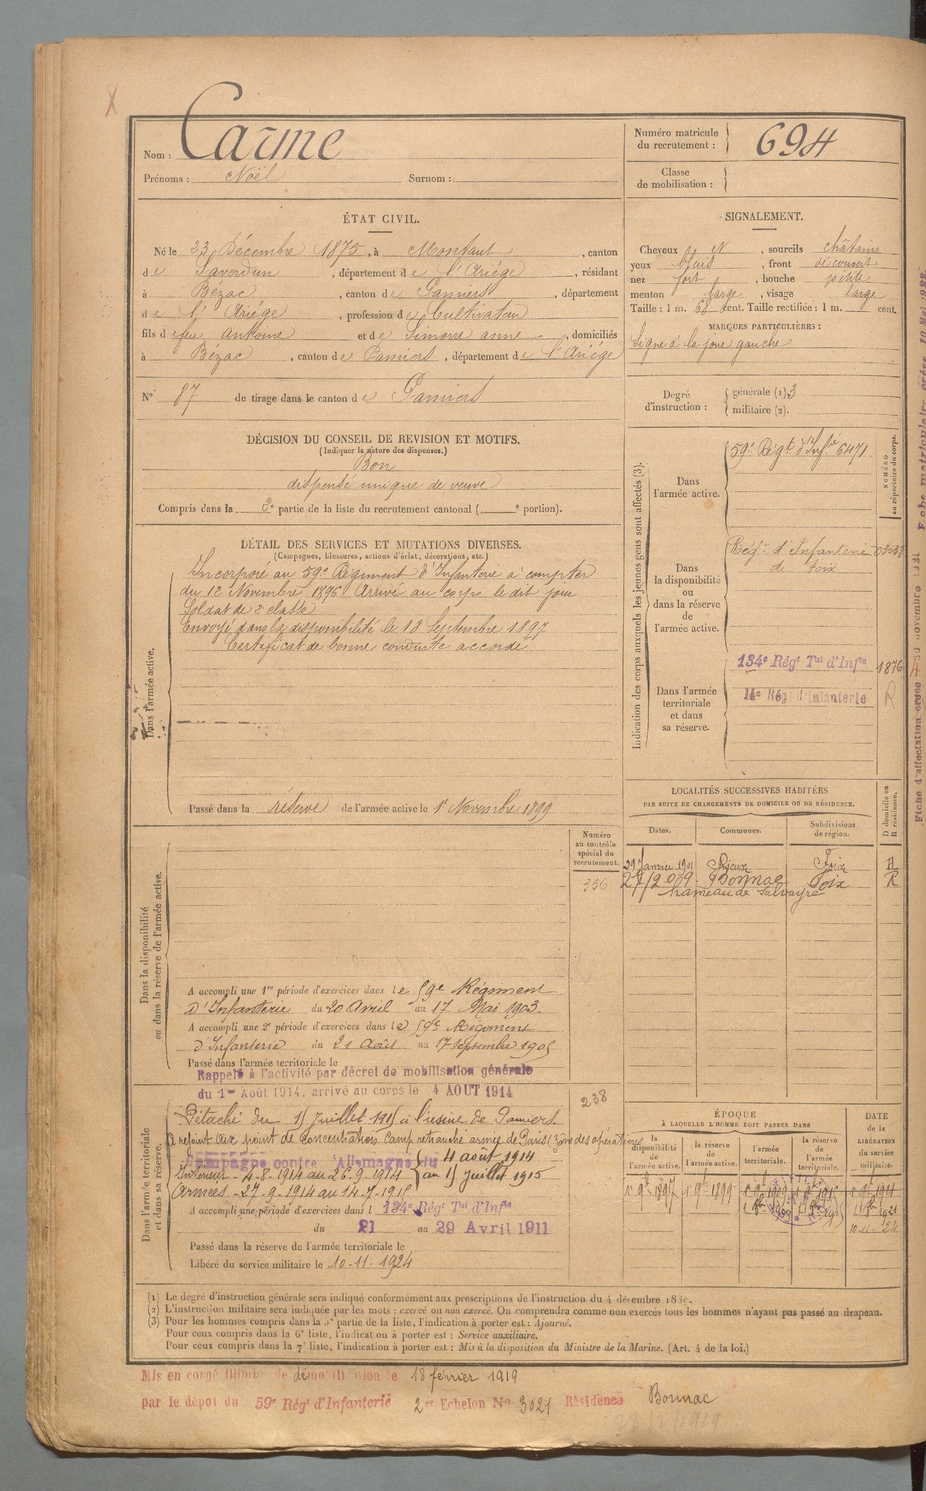 Nom : Carme
Prénoms : Noël Surnom :
Numéro matricule du recrutement : 694
Classe de mobilisation :
ÉTAT CIVIL.
Né le 23 Décembre 1875, à Montaut, canton
de Saverdun, département de l'Ariége, résidant
à Bézac, canton de Pamiers, département
de l'Ariége, profession de Cultivateur
fils de feu Antoine et de Simorre anne, domiciliés
à Bézac, canton de Pamiers, département de l'Ariége
N° 87 de tirage dans le canton de Pamiers
SIGNALEMENT.
Cheveux et, sourcils châtains
yeux, front découvert
nez fort, bouche petite
menton large, visage large
Taille : 1 m. 68 cent. Taille rectifiée : 1 m. cent.
MARQUES PARTICULIÈRES :
Signe à la joue gauche
Degré d'instruction : générale (1). 3
militaire (2).
DÉCISION DU CONSEIL DE REVISION ET MOTIFS.
(Indiquer la nature des dispenses.)
Bon
dispensé unique de veuve
Compris dans la 2e partie de la liste du recrutement cantonal ( e portion).
DÉTAIL DES SERVICES ET MUTATIONS DIVERSES.
(Campagnes, blessures, actions d'éclat, décorations, etc.)
Dans l'armée active.
Incorporé au 59e Régiment d'Infanterie à compter
du 12 Novembre 1896 Arrivé au corps le dit jour
Soldat de 2e classe
Envoyé dans la disponibilité le 18 Septembre 1897
Certificat de bonne conduite accordé
Passé dans la réserve de l'armée active le 1er Novembre 1899
Indication des corps auxquels les jeunes gens sont affectés (3).
NUMÉRO au répertoire du corps.
Dans l'armée active.
59e Régt d'Infie 6471
Dans la disponibilité ou dans la réserve de l'armée active.
Régt d'Infanterie
de Foix
Dans l'armée territoriale et dans sa réserve.
134e Régt Tal d'Infie 1876
14e Régt d'Infanterie R
LOCALITÉS SUCCESSIVES HABITÉES
PAR SUITE DE CHANGEMENTS DE DOMICILE OU DE RÉSIDENCE.
D domicile ou R résidence.
Dates. Communes. Subdivisions de région.
29 Janvier 1901 Rieux Foix R
Bonnac Foix R
hameau de Salvayre
Numéro au contrôle spécial du recrutement.
356
Dans la disponibilité ou dans la réserve de l'armée active.
A accompli une 1re période d'exercices dans le 59e Régiment
d'Infanterie du 20 Avril au 17 Mai 1903
A accompli une 2e période d'exercices dans le 59e Régiment
d'Infanterie du 21 Août au 17 septembre 1905
Passé dans l'armée territoriale le
Rappelé à l'activité par décret de mobilisation générale
du 1er Août 1914, arrivé au corps le 4 AOUT 1914
238
Dans l'armée territoriale et dans sa réserve.
Détaché du 15 Juillet 1915 à l'usine de Pamiers
Campagne contre l'Allemagne du 4 août 1914
au 15 Juillet 1915
Intérieur - 4-8-1914 au 26-9-1914
Armées - 27-9-1914 au 14-7-1915
A accompli une période d'exercices dans l 134e Régt Tal d'Infie
du 21 au 29 Avril 1911
Passé dans la réserve de l'armée territoriale le
Libéré du service militaire le 10-11-1924
ÉPOQUE
À LAQUELLE L'HOMME DOIT PASSER DANS
la disponibilité de l'armée active. la réserve de l'armée active. l'armée territoriale. la réserve de l'armée territoriale.
DATE de la LIBÉRATION du service militaire.
(1) Le degré d'instruction générale sera indiqué conformément aux prescriptions de l'instruction du 4 décembre 1889.
(2) L'instruction militaire sera indiquée par les mots : exercé ou non exercé. On comprendra comme non exercés tous les hommes n'ayant pas passé au drapeau.
(3) Pour les hommes compris dans la 5e partie de la liste, l'indication à porter est : Ajourné.
Pour ceux compris dans la 6e liste, l'indication à porter est : Service auxiliaire.
Pour ceux compris dans la 7e liste, l'indication à porter est : Mis à la disposition du Ministre de la Marine. (Art. 4 de la loi.)
Mis en congé illimité de démobilisation le 18 février 1919
par le dépôt du 59e Régt d'Infanterie 2e Echelon No 3021 Résidence Bonnac